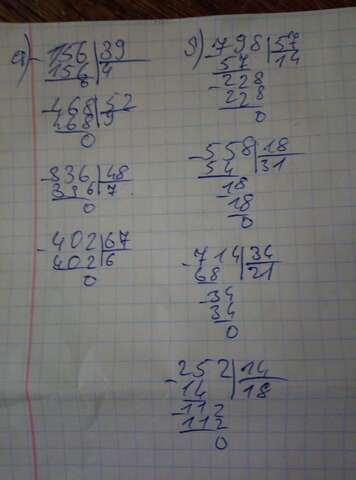 а) -156 | 39
156 | 4
0
-468 | 52
468 | 9
0
-336 | 48
336 | 7
0
-402 | 67
402 | 6
0
д) -798 | 57
57 | 14
-228
228
0
-558 | 18
54 | 31
-18
18
0
-714 | 34
68 | 21
-34
34
0
-252 | 14
14 | 18
-112
112
0